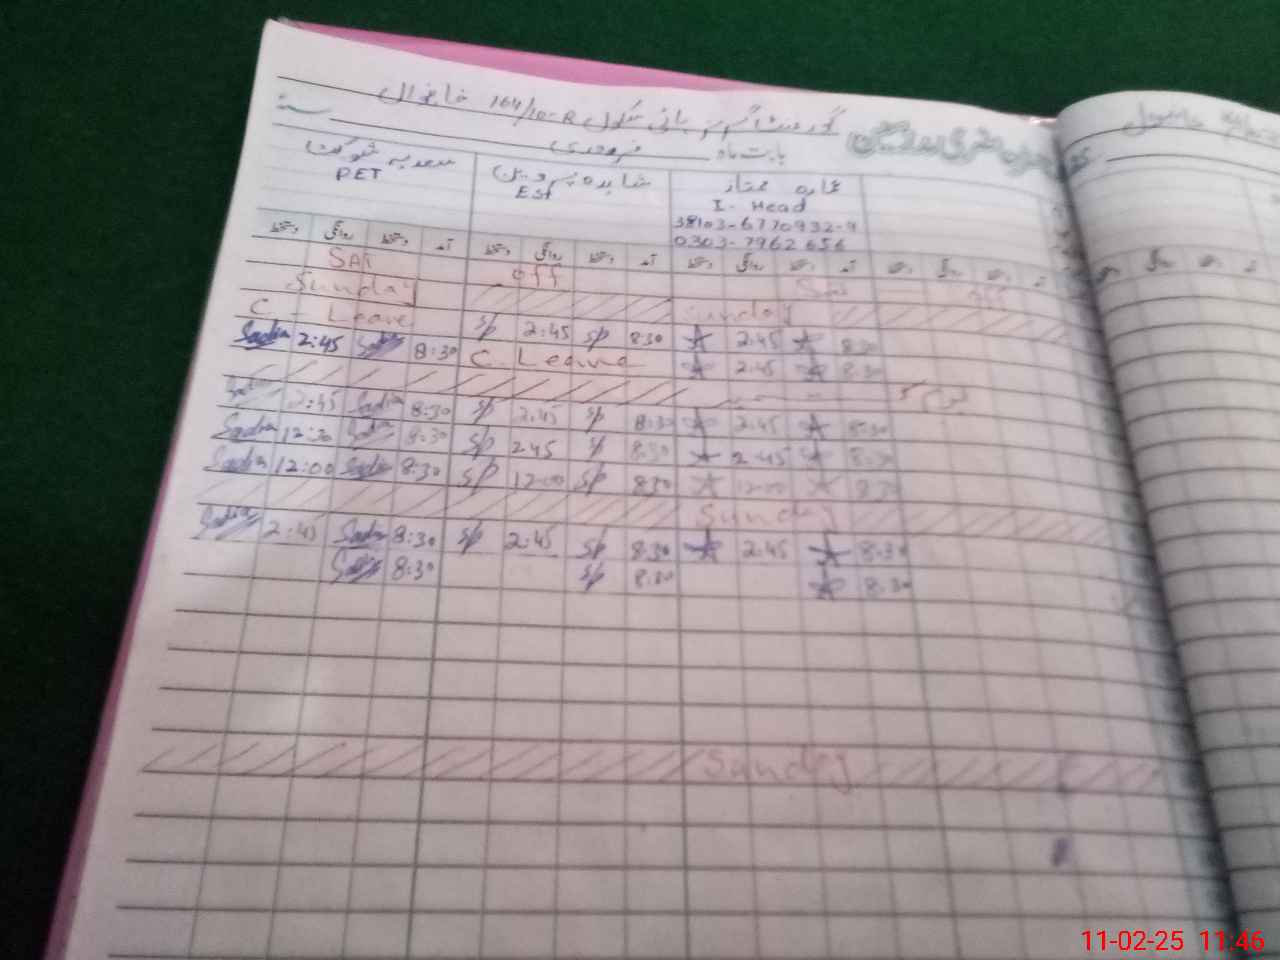 گورنمنٹ گرلز ہائی سکول 164/10-R خانیوال
بابت ماہ فروری
سعدیہ شوکت شاہدہ پروین عمارہ ممتاز
PET EST I- Head
38103-6770932-9
0303-7962656
دستخط روانگی دستخط آمد دستخط روانگی دستخط آمد دستخط روانگی دستخط آمد
SAT off Sat off
Sunday Sunday
C - Leave Sp 2:45 Sp 8:30 2:45 8:30
Sadia 2:45 Sadia 8:30 C. Leave 2:45 8:30
Sadia 2:45 Sadia 8:30 Sp 2:45 Sp 8:30 2:45 8:30
Sadia 12:30 Sadia 8:30 Sp 2:45 Sp 8:30 2:45 8:30
Sadia 12:00 Sadia 8:30 Sp 12:00 Sp 8:30 12:00 8:30
Sunday
Sadia 2:45 Sadia 8:30 Sp 2:45 Sp 8:30 2:45 8:30
Sadia 8:30 Sp 8:30 8:30
Sunday
11-02-25 11:46